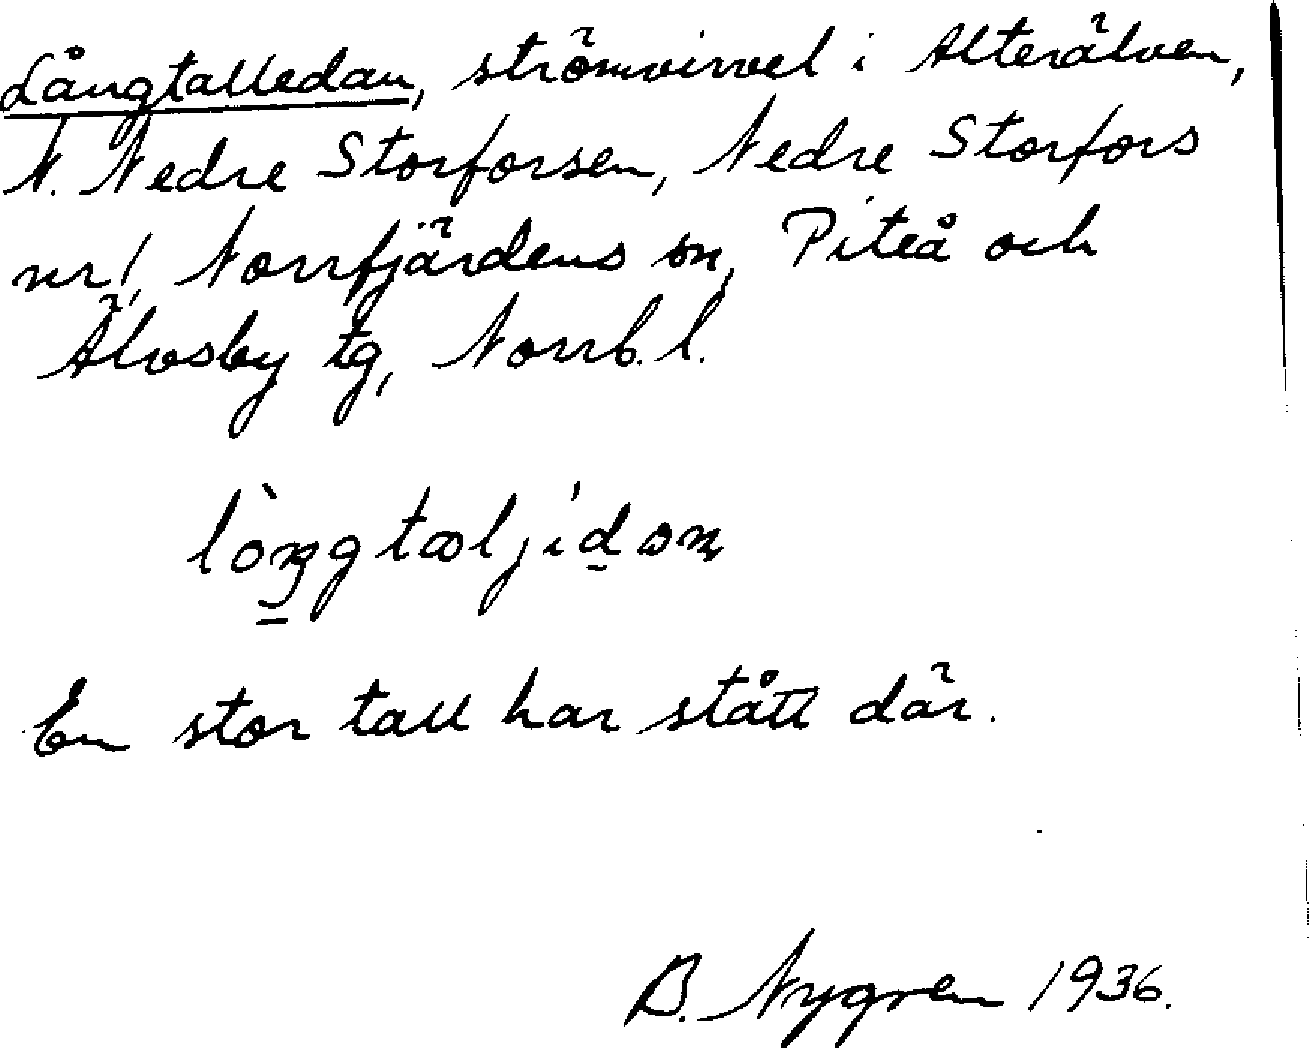 Långtalledan, strömvirvel i Alterälven,
N. Nedre Storforsen, Nedre Storfors
nr 1, Norrfjärdens sn, Piteå och
Älvsby tg, Norrb. l.
lòŋgtæljidan
En stor tall har stått där.
B. Nygren 1936.